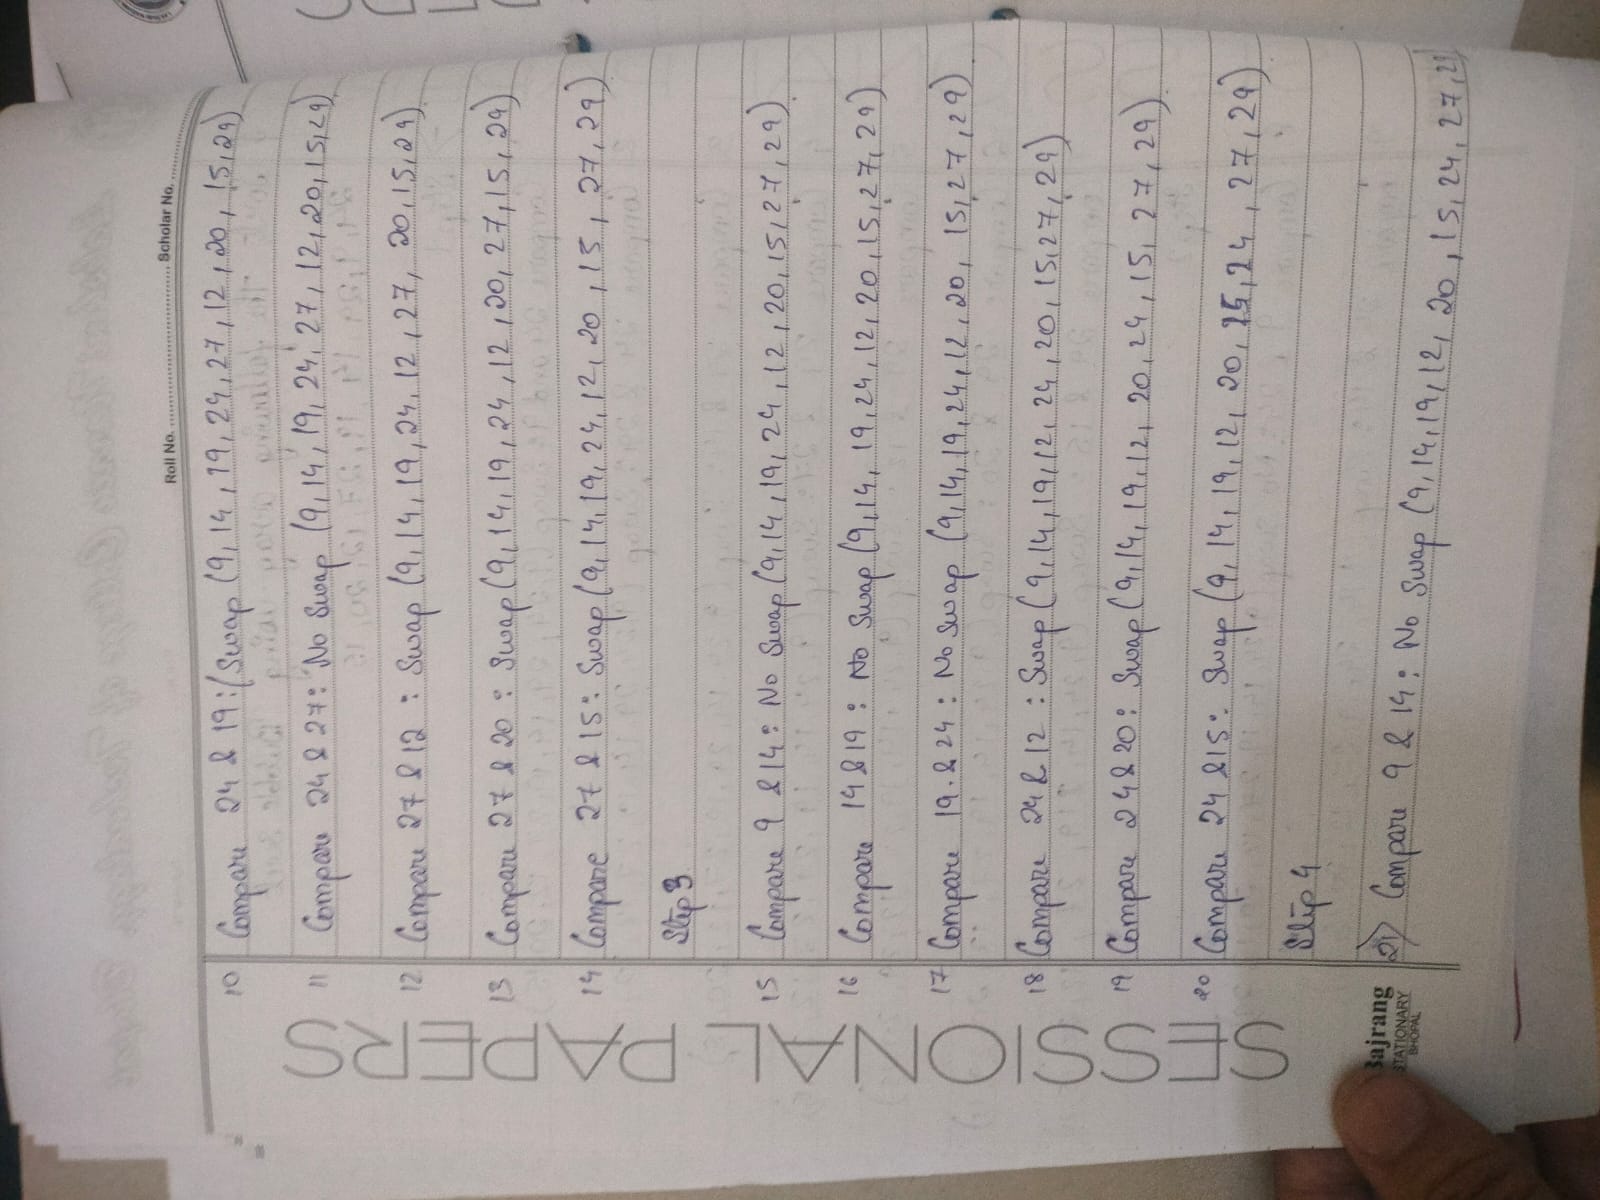 Roll No. ........................ Scholar No. ................
10 Compare 24 & 19: Swap (9, 14, 19, 24, 27, 12, 20, 15, 29)
11 Compare 24 & 27: No Swap (9, 14, 19, 24, 27, 12, 20, 15, 29)
12 Compare 27 & 12: Swap (9, 14, 19, 24, 12, 27, 20, 15, 29)
13 Compare 27 & 20: Swap (9, 14, 19, 24, 12, 20, 27, 15, 29)
14 Compare 27 & 15: Swap (9, 14, 19, 24, 12, 20, 15, 27, 29)
Step 3
15 Compare 9 & 14: No Swap (9, 14, 19, 24, 12, 20, 15, 27, 29)
16 Compare 14 & 19: No Swap (9, 14, 19, 24, 12, 20, 15, 27, 29)
17 Compare 19 & 24: No Swap (9, 14, 19, 24, 12, 20, 15, 27, 29)
18 Compare 24 & 12: Swap (9, 14, 19, 12, 24, 20, 15, 27, 29)
19 Compare 24 & 20: Swap (9, 14, 19, 12, 20, 24, 15, 27, 29)
20 Compare 24 & 15: Swap (9, 14, 19, 12, 20, 15, 24, 27, 29)
Step 4
21) Compare 9 & 14: No Swap (9, 14, 19, 12, 20, 15, 24, 27, 29)
SESSIONAL PAPERS
Bajrang
STATIONARY
BHOPAL